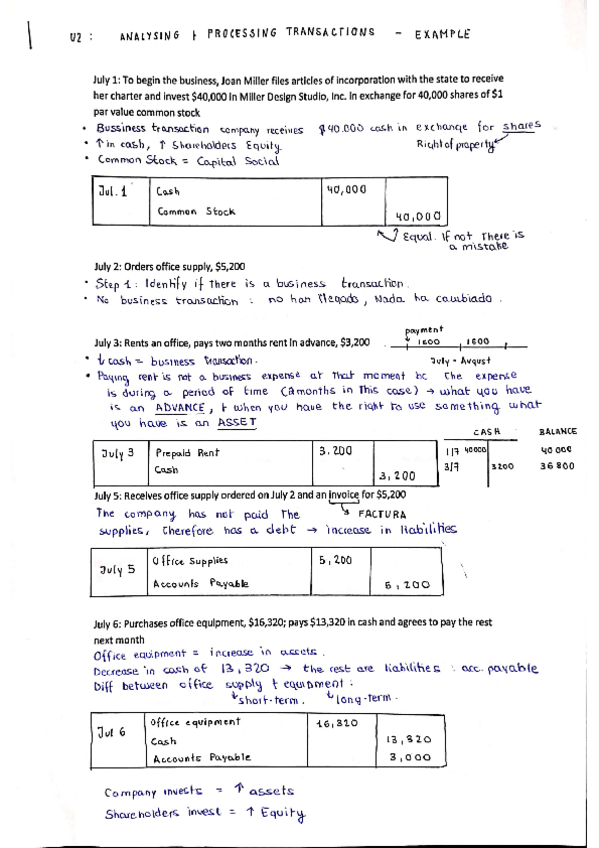 U2 : ANALYSING + PROCESSING TRANSACTIONS - EXAMPLE
July 1: To begin the business, Joan Miller files articles of incorporation with the state to receive
her charter and invest $40,000 in Miller Design Studio, Inc. in exchange for 40,000 shares of $1
par value common stock
• Bussiness transaction company receives $40.000 cash in exchange for shares
• ↑ in cash, ↑ Shareholders Equity. Right of property
• Common Stock = Capital Social
Jul. 1 Cash 40,000
Common Stock 40,000
Equal. If not there is
a mistake
July 2: Orders office supply, $5,200
• Step 1: Identify if there is a business transaction.
• No business transaction : no han llegado, Nada ha cambiado.
payment
July 3: Rents an office, pays two months rent in advance, $3,200 1600 1600
• ↓ cash = business transaction. July - August
• Paying rent is not a business expense at that moment bc the expense
is during a period of time (2 months in this case) → what you have
is an ADVANCE, + when you have the right to use something what
you have is an ASSET
CASH BALANCE
July 3 Prepaid Rent 3.200 1/7 40000 40 000
Cash 3,200 3/7 3200 36 800
July 5: Receives office supply ordered on July 2 and an invoice for $5,200
The company has not paid the FACTURA
supplies, therefore has a debt → increase in liabilities
July 5 Office Supplies 5,200
Accounts Payable 5,200
July 6: Purchases office equipment, $16,320; pays $13,320 in cash and agrees to pay the rest
next month
Office equipment = increase in assets.
Decrease in cash of 13,320 → the rest are liabilities : acc. payable
Diff between office supply + equipment :
↓ short-term. ↓ long-term.
Jul 6 Office equipment 16,320
Cash 13,320
Accounts Payable 3,000
Company invests = ↑ assets
Shareholders invest = ↑ Equity